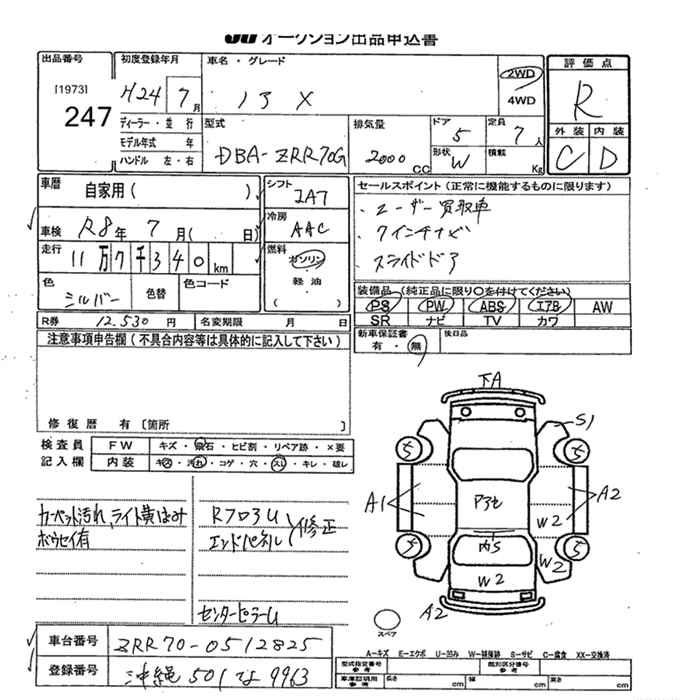 JU オークション出品申込書
出品番号
[1973]
247
初度登録年月
H24 7月
ディーラー・並行
モデル年式 年
ハンドル 左・右
車名・グレード
ノア X
2WD
4WD
評価点
R
外装 内装
C D
型式
DBA-ZRR70G
排気量
2000 cc
ドア
5
形状
W
定員
7人
積載
Kg
車暦
自家用( )
車検 R8年 7月( 日)
走行
11万7千340km
色
シルバー
色替
色コード
シフト
IA7
冷房
AAC
燃料
ガソリン
・
軽油
( )
セールスポイント(正常に機能するものに限ります)
・ユーザー買取車
・7インチナビ
スライドドア
装備品(純正品に限り〇を付けてください)
PS PW ABS エアB AW
SR ナビ TV カワ
新車保証書
有・無
後日品
R券 12,530 円
名変期限 月 日
注意事項申告欄(不具合内容等は具体的に記入して下さい)
修復歴 有 [箇所 ]
検査員
記入欄
FW キズ・飛石・ヒビ割・リペア跡・×要
内装 キズ・汚れ・コゲ・穴・スレ・キレ・雄レ
カーペット汚れ、ライト黄ばみ
ボウセイ有
Rフロアu
エンドパネル
修正
センターピラーu
下A
S1
5
5
A1
A2
Pアセ
W2
内S
5
5
W2
W2
A2
スペア
車台番号 ZRR70-0512825
登録番号 沖縄 501 な 9963
A-キズ E-エクボ U-凹み W-補修跡 S-サビ C-腐食 XX-交換済
型式指定番号
参考
類別区分番号
参考
車庫証明用
参考
長さ cm
幅 cm
高さ cm